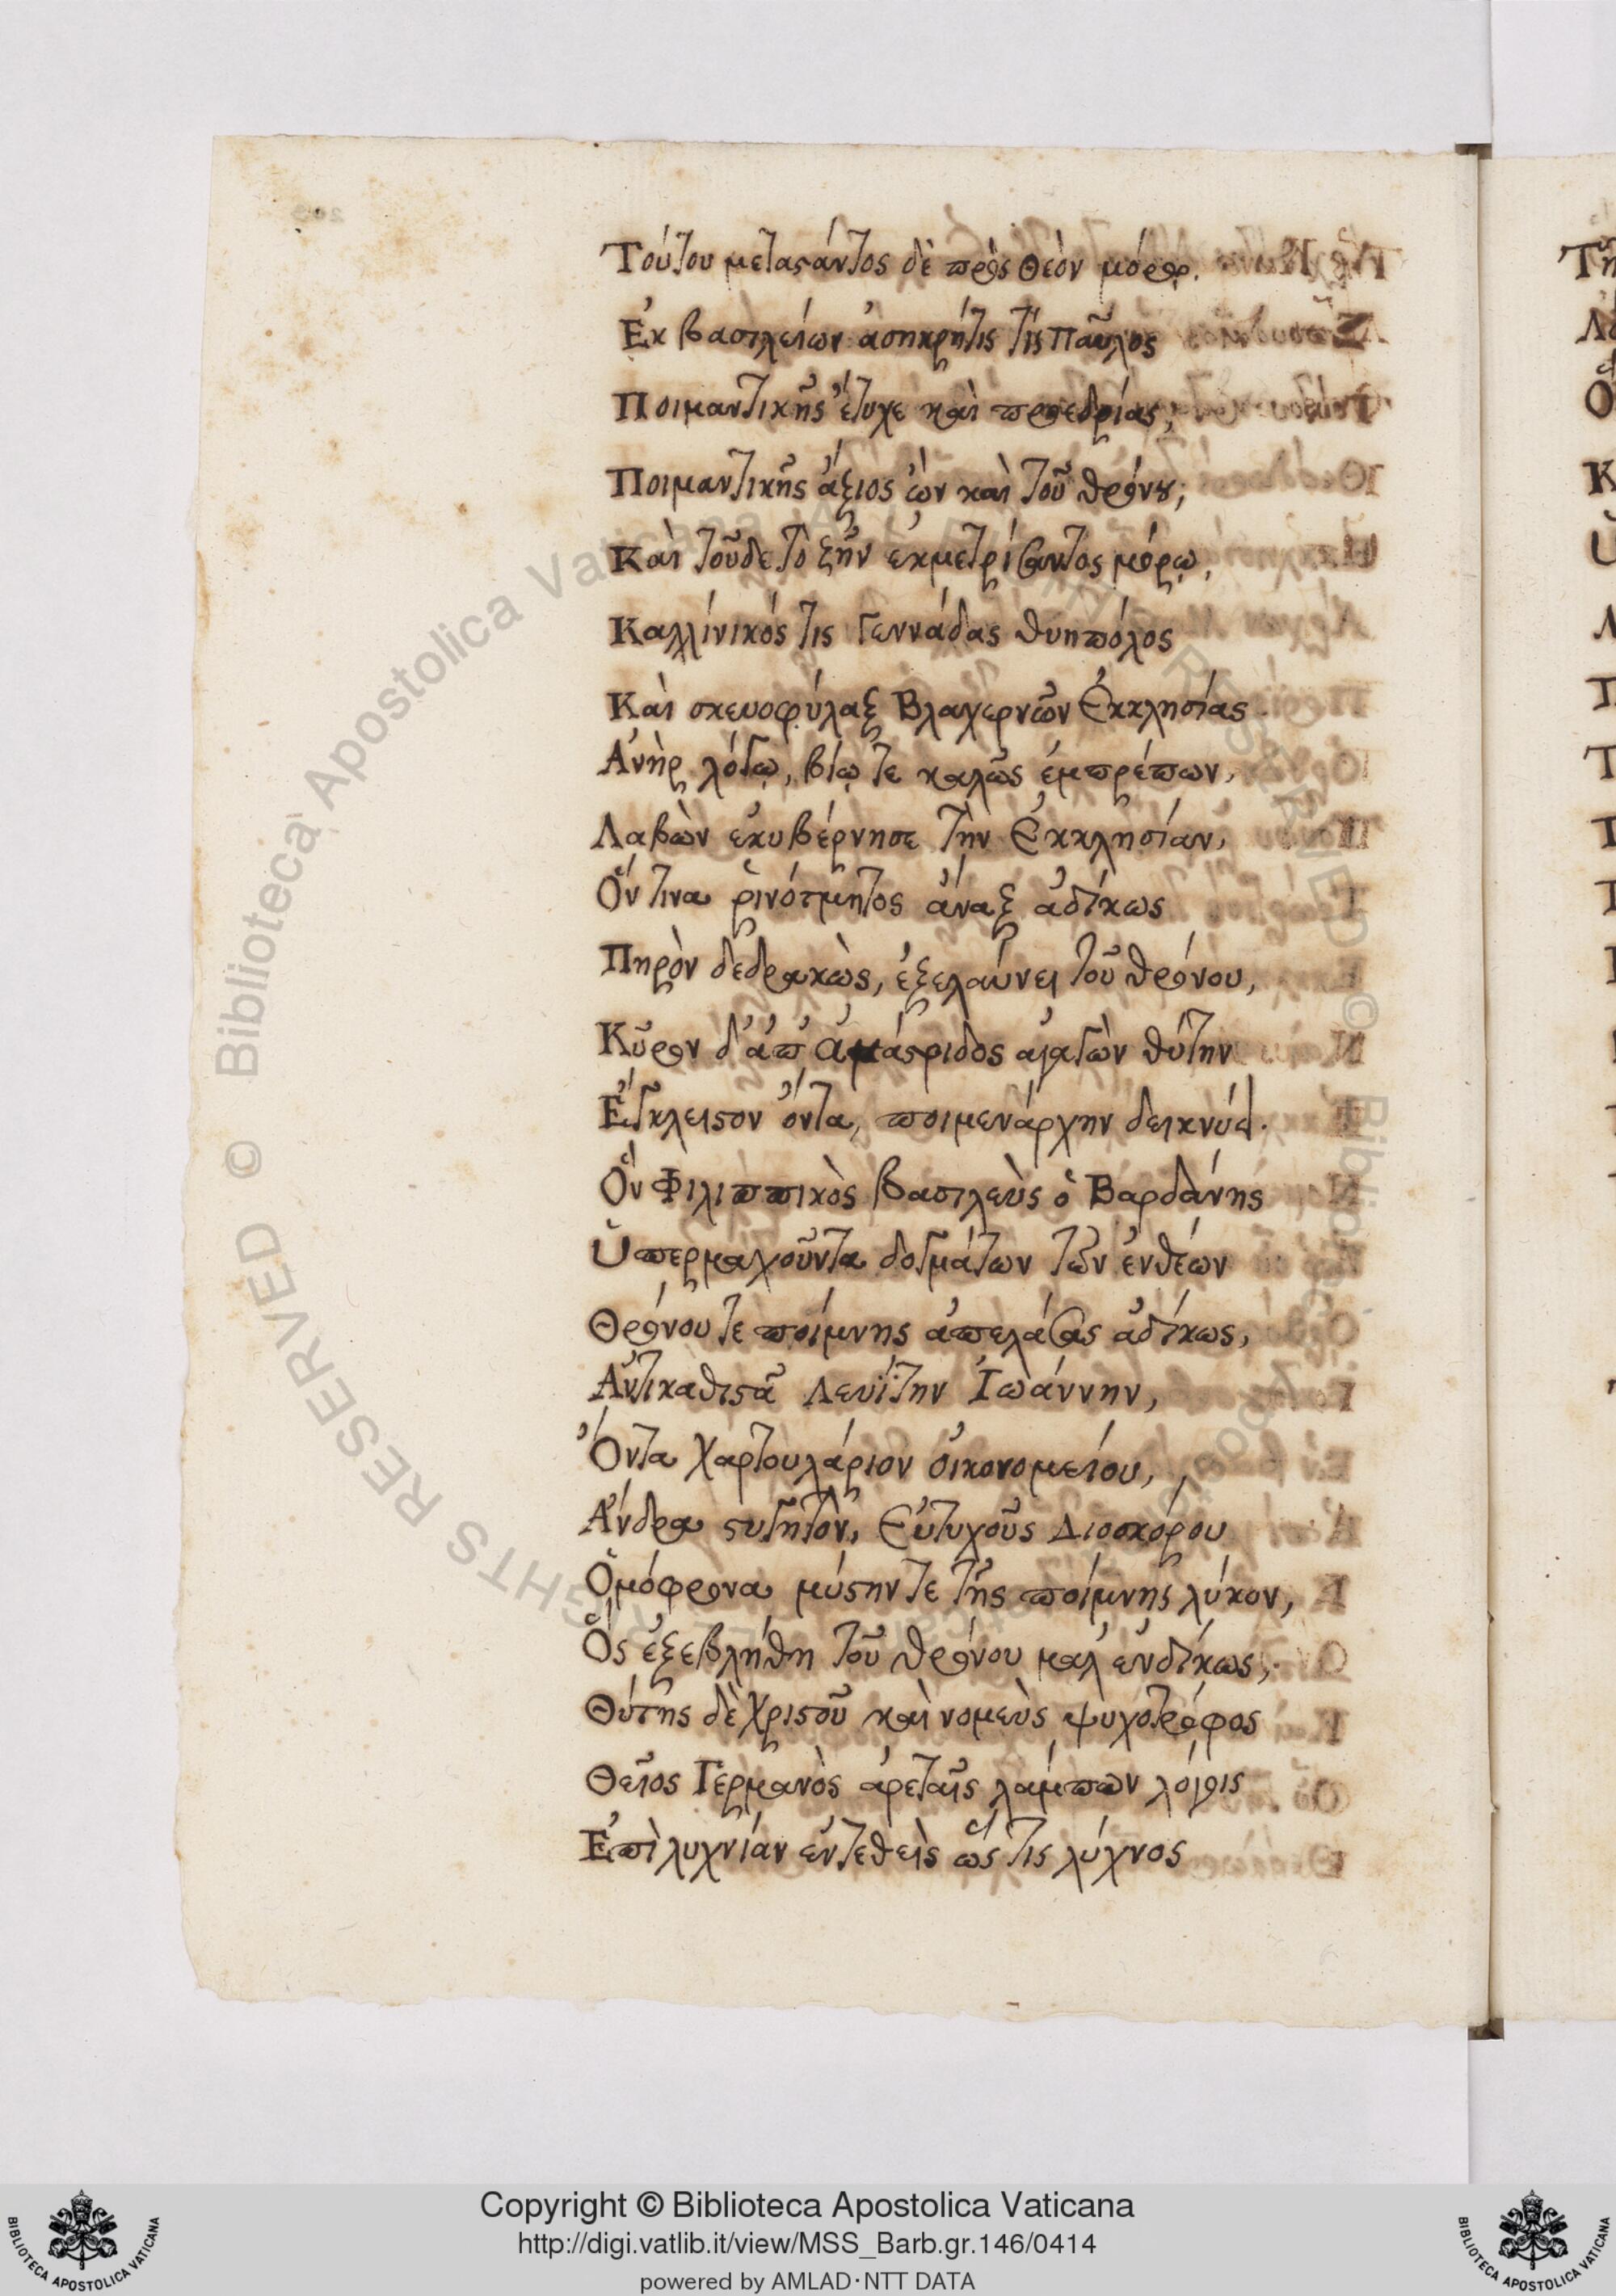 Τούτου μεταστάντος δὲ πρὸς Θεὸν μόρῳ.
Ἐκ βασιλείων ἀσηκρῆτις τὶς Παῦλος
Ποιμαντικῆς ἔτυχε καὶ προεδρίας,
Ποιμαντικῆς ἄξιος ὢν καὶ τοῦ θρόνου;
Καὶ τοῦδε τὸ ζῆν ἐκμετρήσαντος μόρῳ,
Καλλίνικός τις Γεννάδας θυηπόλος
Καὶ σκευοφύλαξ Βλαχερνῶν Ἐκκλησίας.
Ἀνὴρ λόγῳ, βίῳ τε καλῶς ἐμπρέπων,
Λαβὼν ἐκυβέρνησε τὴν Ἐκκλησίαν,
Ὅν τινα ῥινότμητος ἄναξ ἀδίκως
Πηρὸν δεδρακὼς, ἐξελαύνει τοῦ θρόνου,
Κῦρον δ' ἀπ' Ἀμάστριδος ἀγαγὼν θύτην
Ἔγκλειστον ὄντα, ποιμενάρχην δεικνύει.
Ὃν Φιλιππικὸς βασιλεὺς ὁ Βαρδάνης
Ὑπερμαχοῦντα δογμάτων τῶν ἐνθέων
Θρόνου τε ποίμνης ἀπελάσας ἀδίκως,
Ἀντικαθιστᾶ Λευΐτην Ἰωάννην,
Ὄντα Χαρτουλάριον οἰκονομείου,
Ἄνδρα στυγητὸν, Εὐτυχοῦς Διοσκόρου
Ὁμόφρονα μύστην τε τῆς ποίμνης λύκον,
Ὃς ἐξεβλήθη τοῦ θρόνου μάλ' ἐνδίκως,
Θύτης δὲ Χριστοῦ καὶ νομεὺς ψυχοτρόφος
Θεῖος Γερμανὸς ἀρεταῖς λάμπων λόγοις
Ἐπὶ λυχνίαν ἐντεθεὶς ὥς τις λύχνος
© Biblioteca Apostolica Vaticana
Copyright © Biblioteca Apostolica Vaticana
http://digi.vatlib.it/view/MSS_Barb.gr.146/0414
powered by AMLAD·NTT DATA
BIBLIOTECA APOSTOLICA VATICANA
BIBLIOTECA APOSTOLICA VATICANA